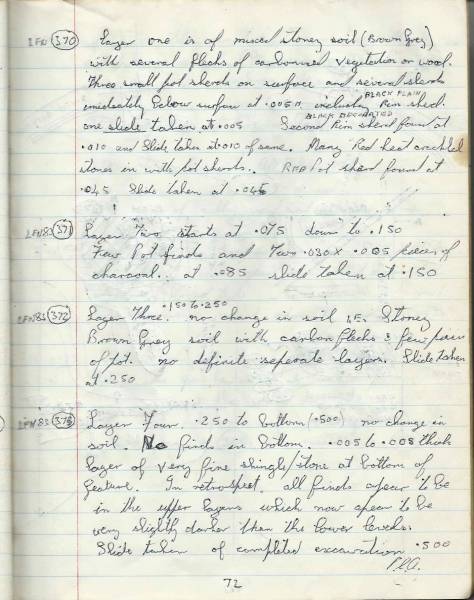 LFN (370) Layer one is of mixed stoney soil (Brown Grey)
with several flecks of carbonised vegetation or wood.
Three small pot sherds on surface and several sherds
imediately below surface at .005m, including BLACK PLAIN Rim sherd.
one slide taken at .005 BLACK DECORATED Second Rim sherd found at
.010 and Slide taken at .010 of same. Many Red heat crackled
stones in with pot sherds. RED Pot sherd found at
.045 Slide taken at .045
LFN83 (371) Layer Two starts at .075 down to .150
Few Pot finds and Two .030 x .005 pieces of
charcoal. at .085 slide taken at .150
LFN83 (372) Layer Three. .150 to .250 no change in soil I.E. Stoney
Brown Grey soil with carbon flecks & few pieces
of pot. no definite seperate layers. Slide taken
at .250
LFN83 (373) Layer Four. .250 to bottom (.500) no change in
soil. No finds in bottom. .005 to .008 thick
layer of very fine shingle/stone at bottom of
feature. In retrospect, all finds apear to be
in the upper layers which now apear to be
very slightly darker than the lower levels.
Slide taken of completed excavation .500
72